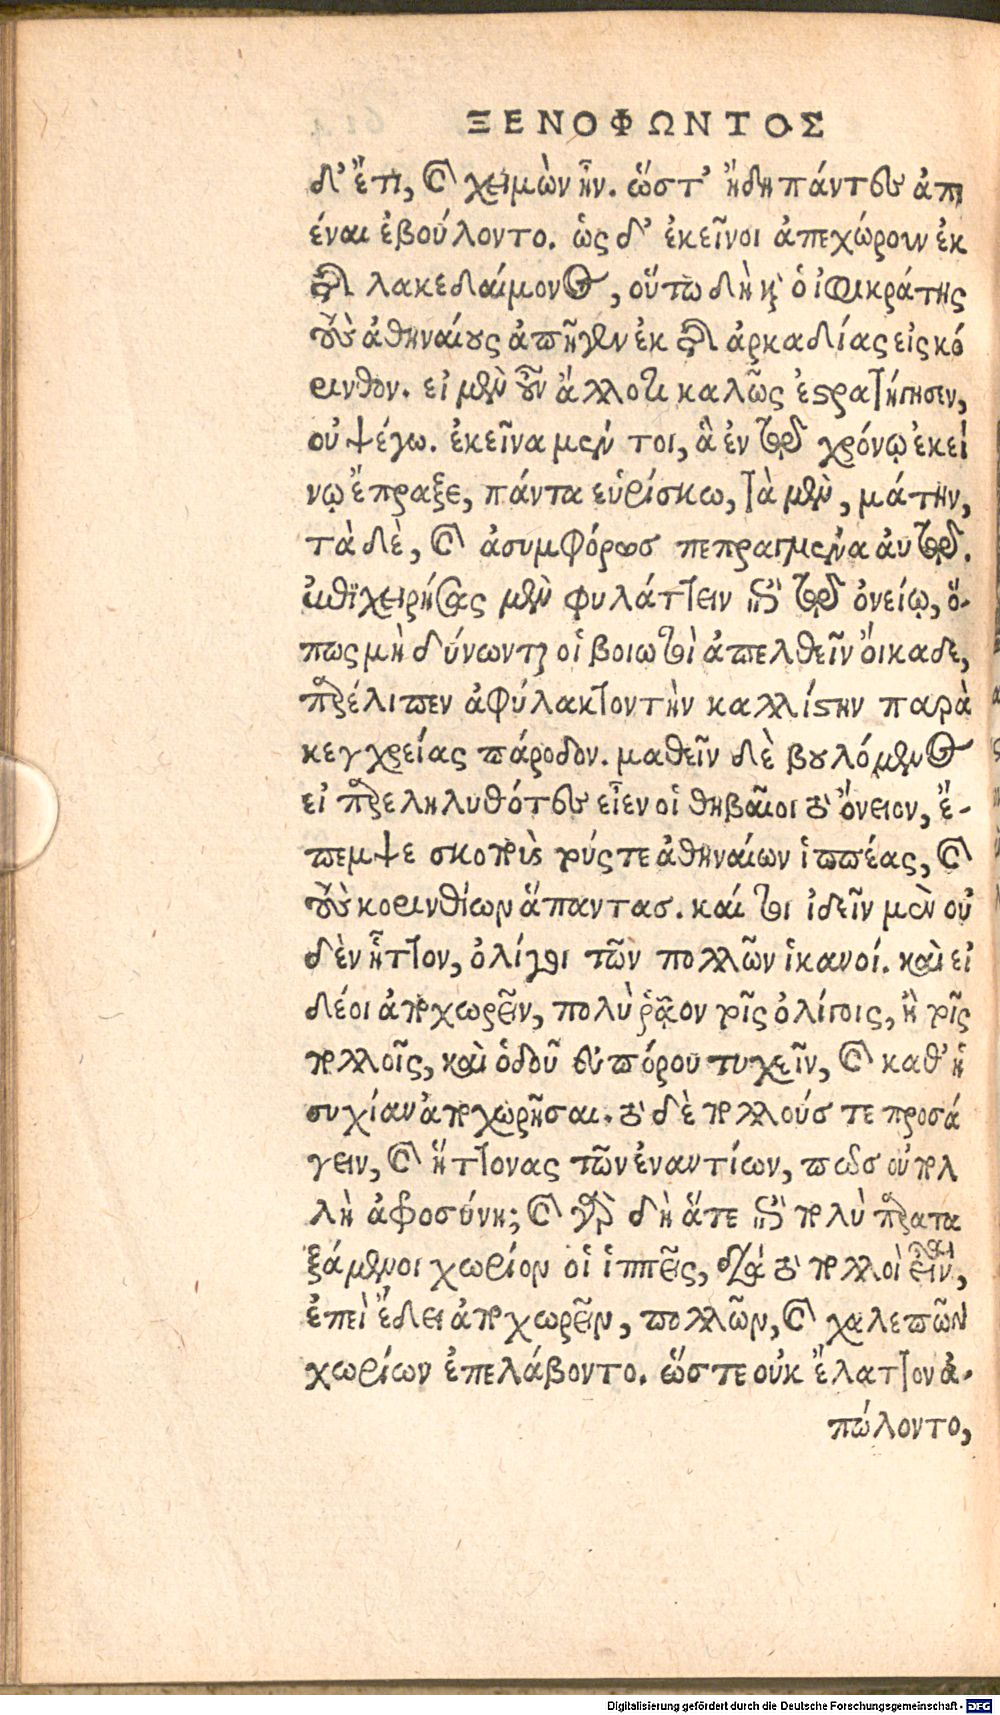 ΞΕΝΟΦΩΝΤΟΣ
δ' ἔτι, καὶ χειμὼν ἦν. ὥστ' ἤδη πάντες ἀπι
έναι ἐβούλοντο. ὡς δ' ἐκεῖνοι ἀπεχώρουν ἐκ
τῆς λακεδαίμονος, οὕτω δὴ καὶ ὁ ἰφικράτης
τοὺς ἀθηναίους ἀπῆγεν ἐκ τῆς ἀρκαδίας εἰς κό
ρινθον. εἰ μὲν οὖν ἄλλοτι καλῶς ἐστρατήγησεν,
οὐ ψέγω. ἐκεῖνα μέν τοι, ἃ ἐν τῷ χρόνῳ ἐκεί
νῳ ἔπραξε, πάντα εὑρίσκω, τὰ μὲν, μάτην,
τὰ δὲ, καὶ ἀσυμφόρως πεπραγμένα αὐτῷ.
ἐπιχειρήσας μὲν φυλάττειν ἐπὶ τῷ ὀνείῳ, ὅ-
πως μὴ δύνωνται οἱ βοιωτοὶ ἀπελθεῖν ὄικαδε,
παρέλιπεν ἀφύλακτον τὴν καλλίστην παρὰ
κεγχρείας πάροδον. μαθεῖν δὲ βουλόμενος
εἰ παρεληλυθότες εἶεν οἱ θηβαῖοι τὸ ὄνειον, ἔ-
πεμψε σκοποὺς τούς τε ἀθηναίων ἱππέας, καὶ
τοὺς κορινθίων ἅπαντας. καί τοι ἰδεῖν μὲν οὐ
δὲν ἧττον, ὀλίγοι τῶν πολλῶν ἱκανοί. καὶ εἰ
δέοι ἀποχωρεῖν, πολὺ ῥᾷον τοῖς ὀλίγοις, ἢ τοῖς
πολλοῖς, καὶ ὁδοῦ εὐπόρου τυχεῖν, καὶ καθ' ἡ
συχίαν ἀποχωρῆσαι. τὸ δὲ πολλούς τε προσά
γειν, καὶ ἥττονας τῶν ἐναντίων, πῶς οὐ πολ
λὴ ἀφροσύνη; καὶ γὰρ δὴ ἅτε ἐπὶ πολὺ παρατα
ξάμενοι χωρίον οἱ ἱππεῖς, διὰ τὸ πολλοὶ εἶναι,
ἐπεὶ ἔδει ἀποχωρεῖν, πολλῶν, καὶ χαλεπῶν
χωρίων ἐπελάβοντο. ὥστε οὐκ ἔλαττον ἀ-
πώλοντο,
Digitalisierung gefördert durch die Deutsche Forschungsgemeinschaft - DFG